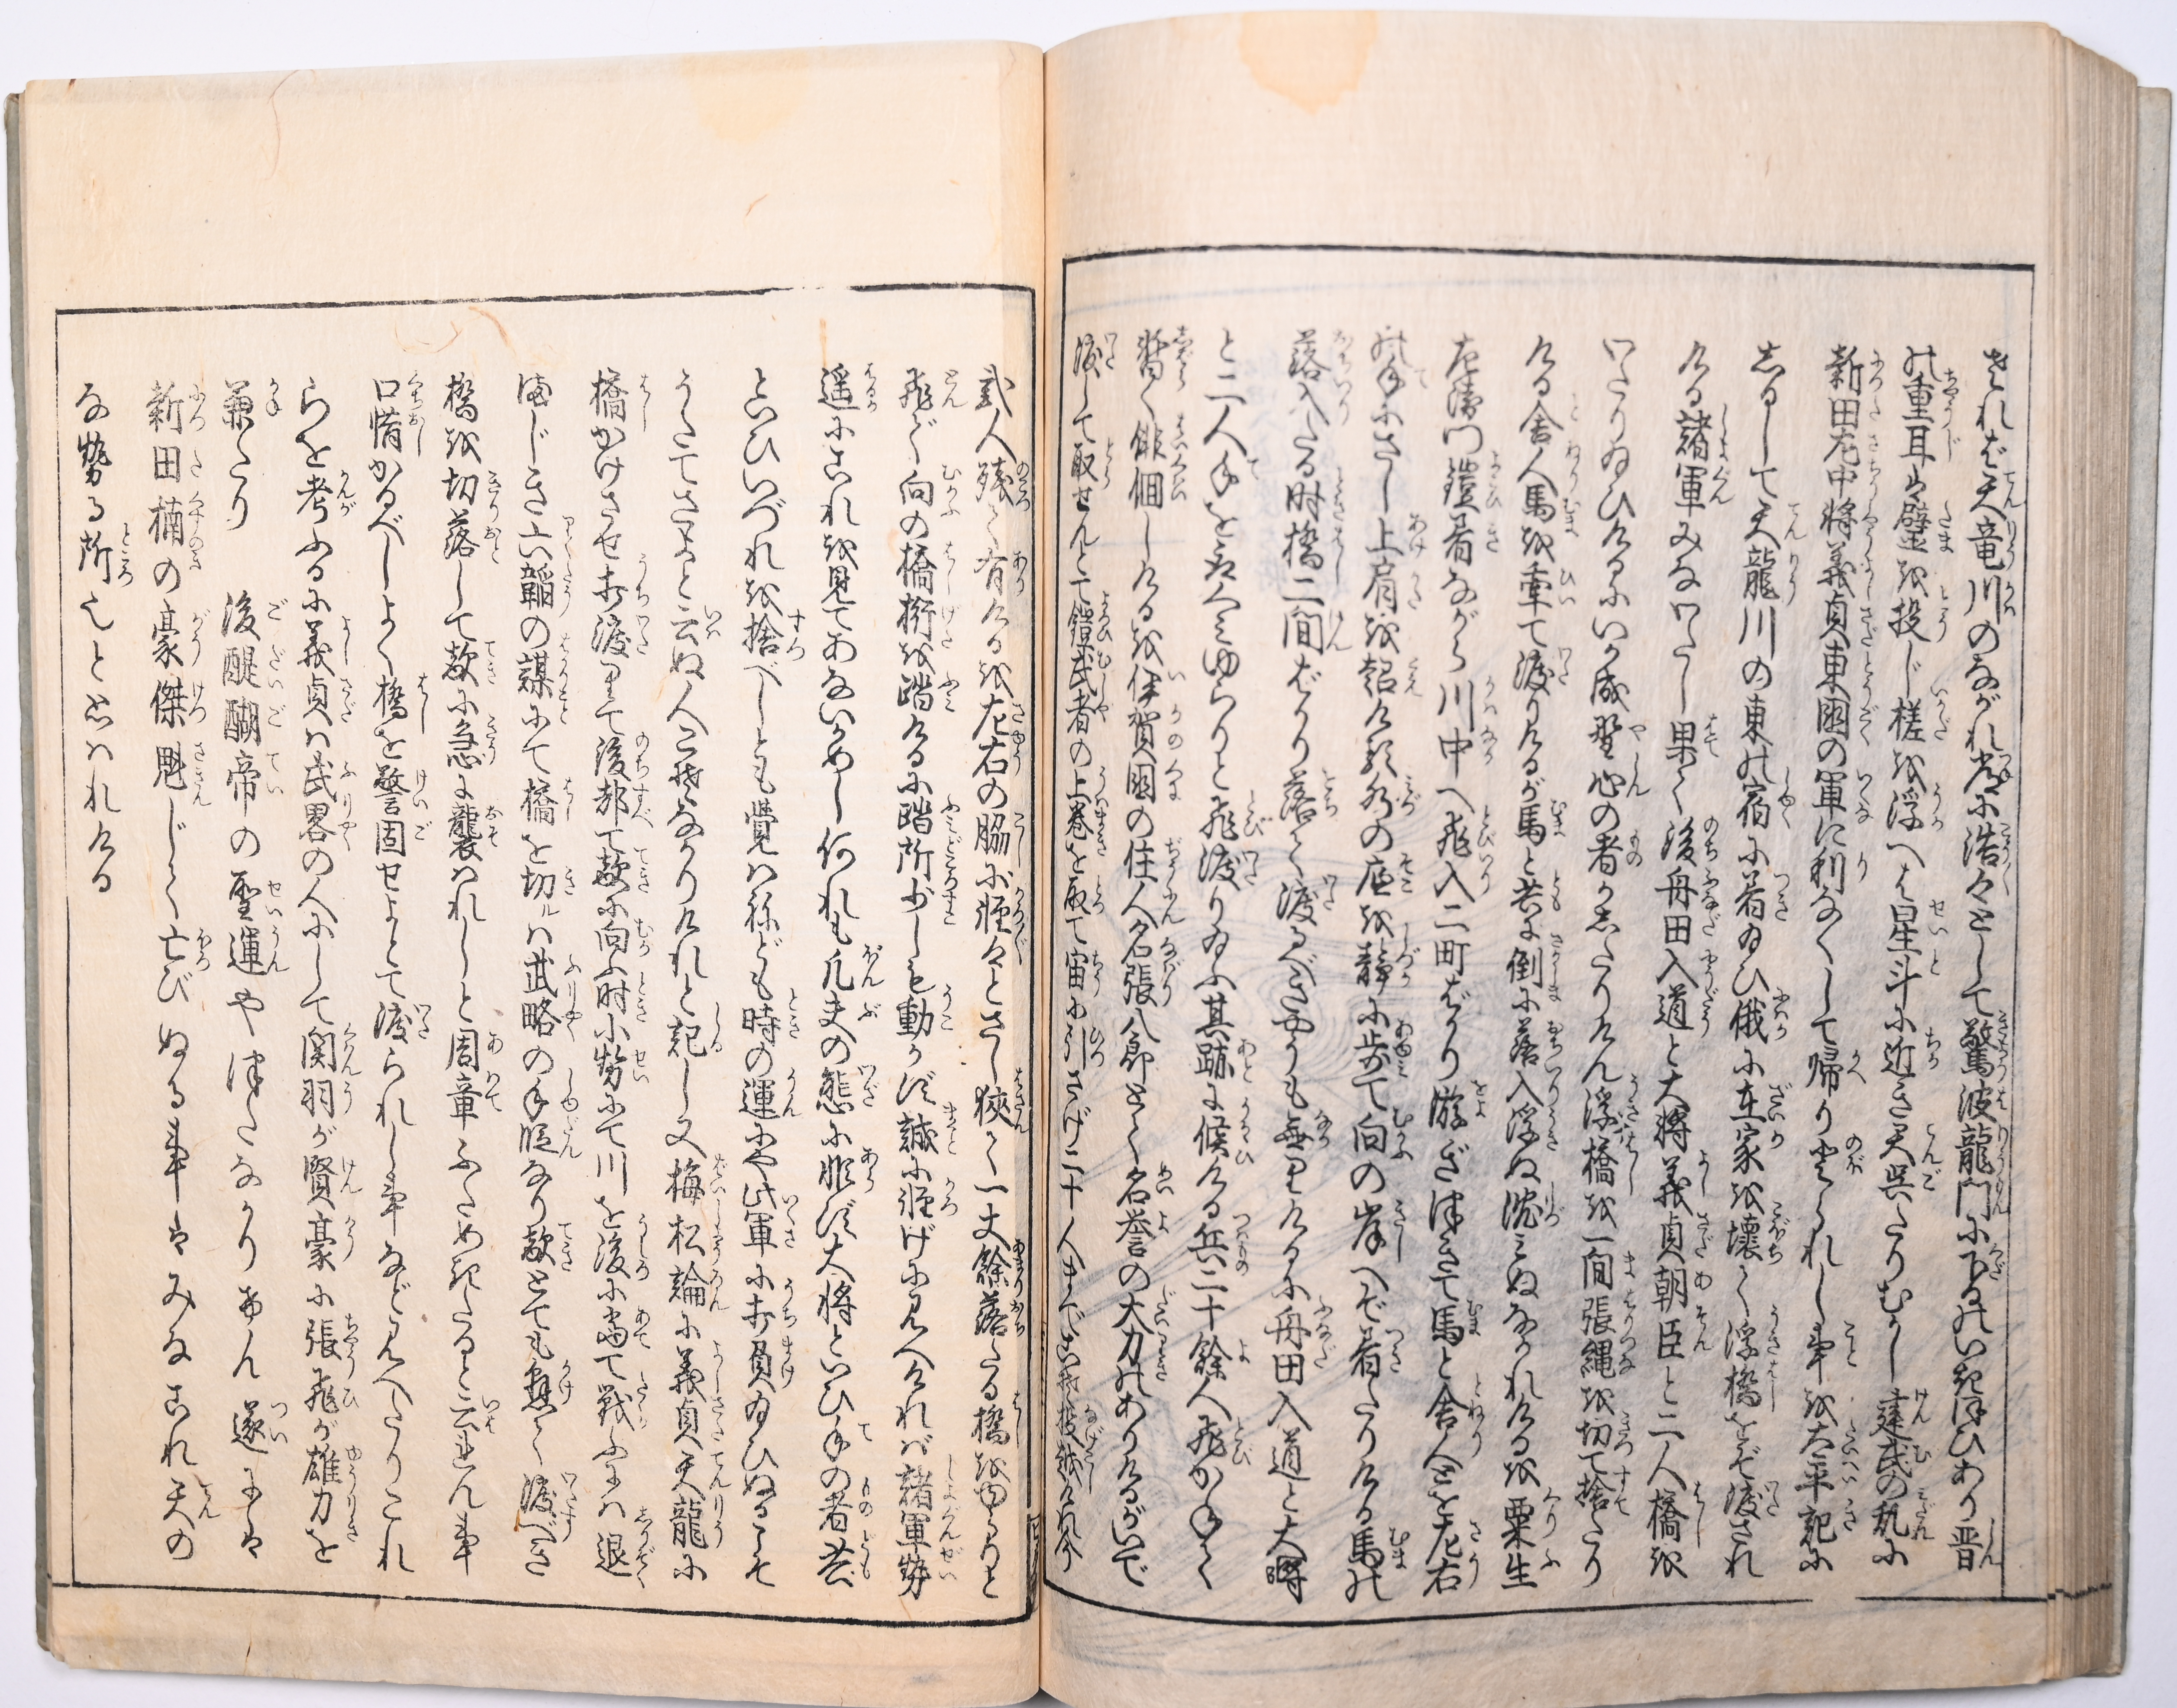 されば天竜川のながれ常に浩々として驚波龍門に下るのいきほひあり晋
の重耳は璧を投じ槎を浮へは星斗に近き天呉たりむかし建武の乱に
新田左中将義貞東国の軍に利なくして帰り登られし事を太平記に
しるして天龍川の東の宿に着ゐひ俄に在家を壊て浮橋をぞ渡され
ける諸軍みなわたし果て後舟田入道と大将義貞朝臣と二人橋を
わたりゐひけるにいか成野心の者かしたりけん浮橋を一間張縄を切て捨たり
ける舎人馬を牽て渡りけるが馬と共に倒に落入浮ぬ沈みぬながれけるを栗生
左衛門鎧着ながら川中へ飛入二町ばかり游ぎ津きて馬と舎人とを左右
の手にさし上肩を超ける水の底を静に歩て向の岸へぞ着たりける馬の
落入たる時橋二間ばかり落て渡るべきやうも無りけるに舟田入道と大将
と二人手をとりくみゆらりと飛渡りゐふ其跡に候ける兵二十餘人飛かねて
暫く俳佪しけるを伊賀国の住人名張八郎とて名誉の大力のありけるがいで
渡して取せんとて鎧武者の上巻を取て宙に引さげ二十人までこそ投越けれ今
弐人残て有けるを左右の脇に軽々とさし狭て一丈餘落たる橋をゆらりと
飛で向の橋桁を踏けるに踏所少しも動かず誠に軽げに見へければ諸軍勢
遥にこれを見てあないかめし何れも凡夫の態に非ず大将といひ手の者共
といひいづれを捨べしとも覚ハねども時の運にや此軍に打負ゐひぬるこそ
うたてさよと云ぬ人こそなかりけれと記し又梅松論に義貞天龍に
橋かけさせ打渡りて後都て敵に向ふ時小勢にて川を後に当て戦ふには退
まじき六韜の謀にて橋を切ルハ武略の手段なり敵とても懸て渡べき
橋を切落して敵に急に襲ハれしと周章ふためきたると云れん事
口惜かるべしよく橋を警固せよとて渡られし事など見へたりこれ
らを考ふるに義貞ハ武略の人にして関羽が賢豪に張飛が雄力を
兼たり　後醍醐帝の聖運や津たなかりけん遂には
新田楠の豪傑魁じて亡びぬる事はみなこれ天の
な勢る所也と思ハれける